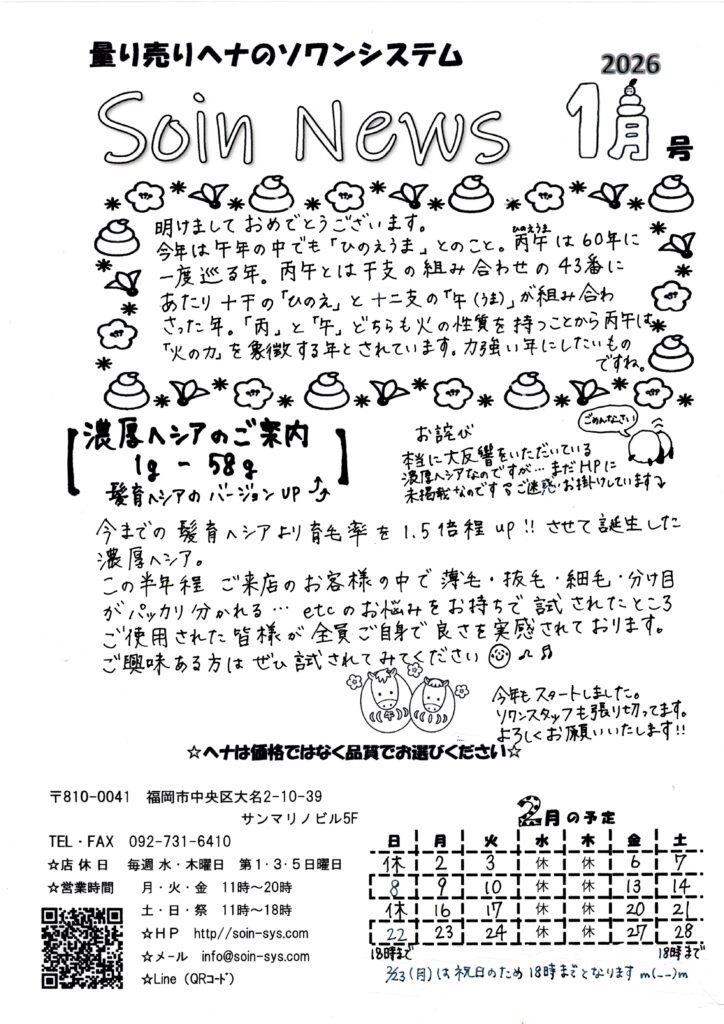 量り売りヘナのソワンシステム
2026
Soin News 1月号
明けまして おめでとうございます。
今年は午年の中でも「ひのえうま」とのこと。丙午(ひのえうま)は60年に
一度巡る年。丙午とは干支の組み合わせの43番に
あたり十干の「ひのえ」と十二支の「午(うま)」が組み合わ
さった年。「丙」と「午」どちらも火の性質を持つことから丙午は
「火の力」を象徴する年とされています。力強い年にしたいもの
ですね。
濃厚ヘシアのご案内
1g - 58g
髪育ヘシアのバージョンUP
ごめんなさい
お詫び
本当に大反響をいただいている
濃厚ヘシアなのですが…まだHPに
未掲載なのです ご迷惑お掛けしています
今までの髪育ヘシアより育毛率を1.5倍程up!!させて誕生した
濃厚ヘシア。
この半年程 ご来店のお客様の中で薄毛・抜毛・細毛・分け目
がパッカリ分かれる…etcのお悩みをお持ちで試されたところ
ご使用された皆様が全員ご自身で良さを実感されております。
ご興味ある方はぜひ試されてみてください
午
今年もスタートしました。
ソワンスタッフも張り切ってます。
よろしくお願いいたします!!
☆ヘナは価格ではなく品質でお選びください☆
〒810-0041 福岡市中央区大名2-10-39
サンマリノビル5F
TEL・FAX 092-731-6410
☆店休日 毎週水・木曜日 第1・3・5日曜日
☆営業時間 月・火・金 11時～20時
土・日・祭 11時～18時
☆HP http//soin-sys.com
☆メール info@soin-sys.com
☆Line (QRｺｰﾄﾞ)
2月の予定
日 月 火 水 木 金 土
休 2 3 休 休 6 7
8 9 10 休 休 13 14
休 16 17 休 休 20 21
22 23 24 休 休 27 28
18時まで 18時まで
2/23(月)は祝日のため18時までとなります m(__)m